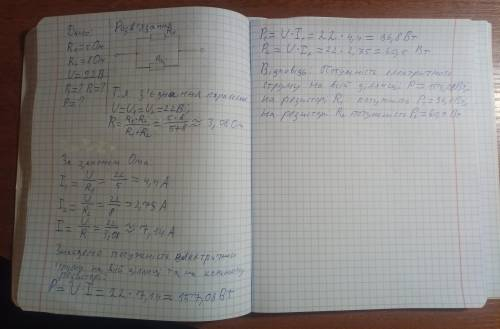 Дано:
R₁=5Ом
R₂=8Ом
U=22В
P=?
Розв'язання
R₁
R₂
Т.я з'єднання паралельне
U=U₁=U₂=22В;
R= R₁·R₂ / R₁+R₂ = 5·8 / 5+8 ≈ 3,08 Ом
За законом Ома
I₁= U/R₁ = 22/5 = 4,4 А
I₂= U/R₂ = 22/8 = 2,75 А
I= U/R = 22/3,08 ≈ 7,14 А
Знайдемо потужність електричного
струму на всій ділянці та на кожному
резисторі:
P= U·I = 22·7,14 = 157,08 Вт
P₁= U·I₁ = 22·4,4 = 96,8 Вт
P₂= U·I₂ = 22·2,75 = 60,5 Вт
Відповідь потужність електричного
струму на всій ділянці P=157,08Вт,
на резисторі R₁ потужність P₁=96,8Вт,
на резисторі R₂ потужність P₂=60,5 Вт